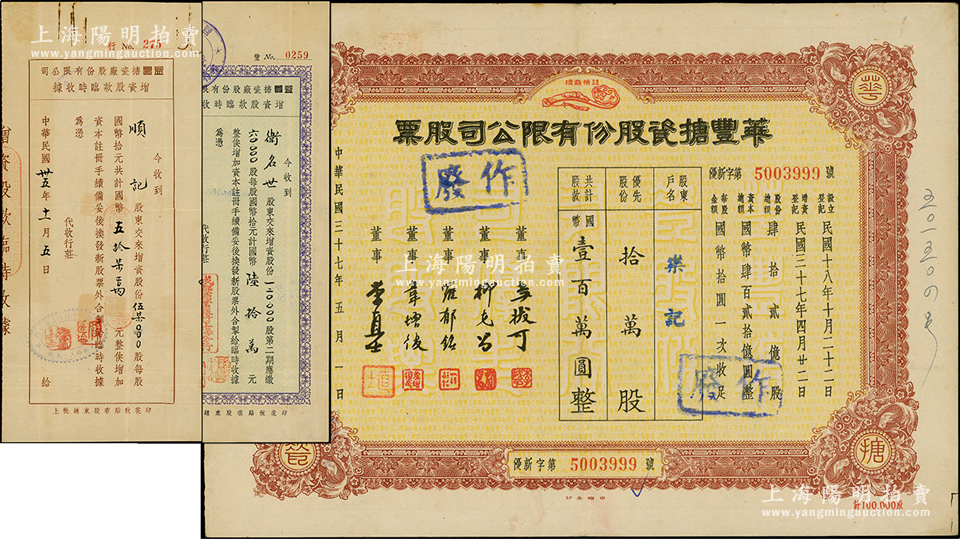 上海陽明拍賣
www.yangmingauction.com
行 No. 275
搪瓷廠股份有限公司
增資股款臨時收據
今收到
順記 股東交來增資股份 股每股
國幣拾元共計國幣 元整俟增加
資本註冊手續備妥後換發新股票外合製給臨時收據
為憑
代收行莊
中華民國卅五年十一月五日 給
印花稅貼在股東繳款上
增資股款臨時收據
No. 0259
搪瓷廠股份有限
增資股款臨時收
今收到
衛名世 股東交來增資股份120000股第二期應繳
60000股每股國幣拾元計國幣 陸拾萬 元
整俟增加資本註冊手續備妥後換發新股票外合製給臨時收據
為憑
代收行莊
註冊商標
華豐搪瓷股份有限公司股票
優新字第 5003999 號
設立登記 民國十八年十月二十二日
增資登記 民國三十七年四月廿二日
股份總額 肆拾貳億股
資本總額 國幣肆百貳拾億圓整
每股金額 國幣拾圓一次收足
股東戶名 樂記
優先股份 拾萬股
共計股款 國幣壹百萬圓整
董事
董事
董事
董事
董事 李直士
中華民國三十七年五月一日
作廢
作廢
華
豐
搪
瓷
優新字第 5003999 號
計100,000股
上海陽明拍賣
www.yangmingauction.com